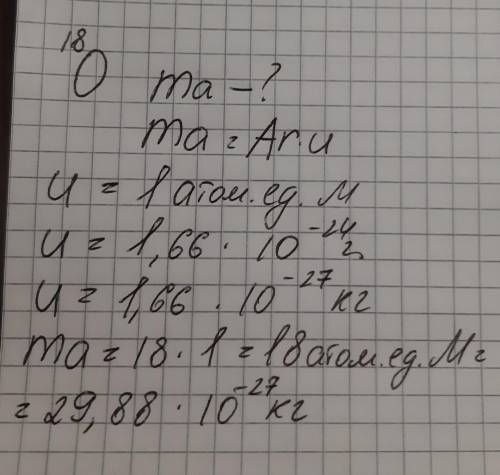 ¹⁸O ma – ?
ma = Ar·u
u = 1 атом.ед.М
u = 1,66 · 10⁻²⁴ г
u = 1,66 · 10⁻²⁷ кг
ma = 18 · 1 = 18 атом.ед.М =
= 29,88 · 10⁻²⁷ кг